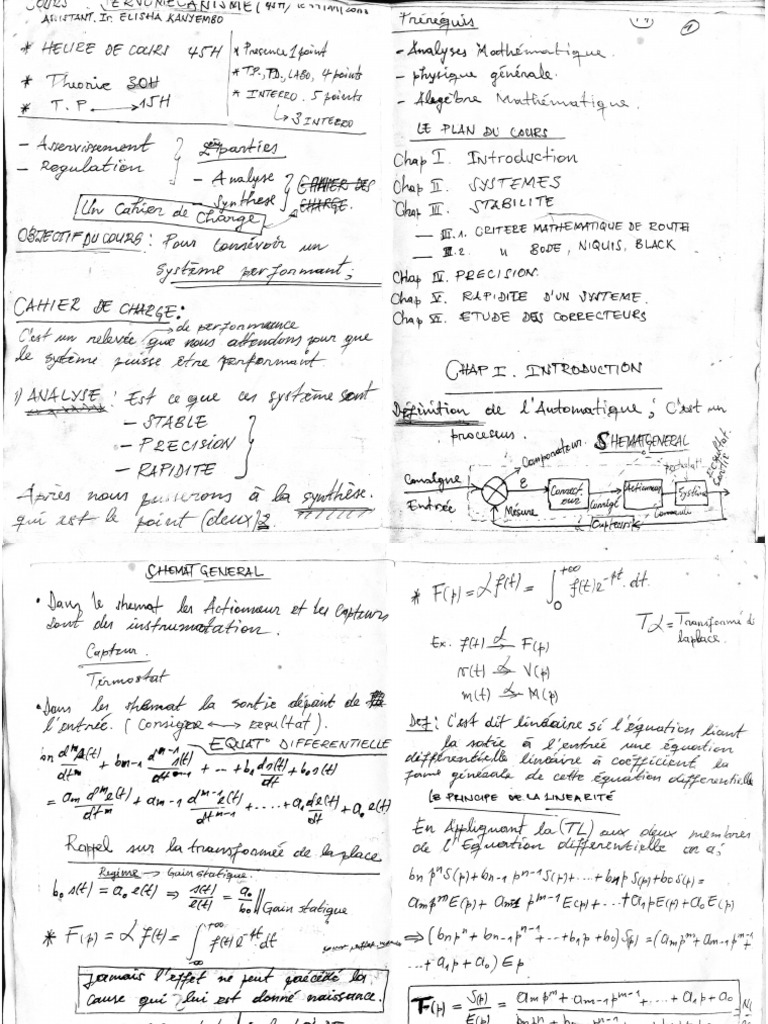 COURS SERVOMECANISME (45H)
ASSISTANT. Ir. ELISHA KANYEMBO
* HEURE DE COURS 45H
* Theorie 30H
* T.P → 15H
* Presence 1 point
* T.P., T.D., LABO, 4 points
* INTERRO. 5 points
↳ 3 INTERRO
- Asservissement
- Regulation
parties
- Analyse
- Synthese
CAHIER DES
CHARGE.
Un Cahier de Charge
OBJECTIF DU COURS : Pour consévoir un
Système performant;
CAHIER DE CHARGE:
C'est un relevée de performance que nous attendons pour que
le système puisse être performant.
1) ANALYSE : Est ce que ces système sont
- STABLE
- PRECISION
- RAPIDITE
Après nous à la synthèse.
qui est le point (deux) 2
Prérequis
- Analyses Mathématique.
- physique générale.
- Algèbre Mathématique.
LE PLAN DU COURS
Chap I. Introduction
Chap II. SYSTEMES
Chap III. STABILITE
— III.1. CRITERE MATHEMATIQUE DE ROUTH
— III.2. " BODE, NIQUIS, BLACK
Chap IV. PRECISION.
Chap V. RAPIDITE D'UN SYSTEME.
Chap VI. ETUDE DES CORRECTEURS
CHAP I. INTRODUCTION
Définition de l'Automatique; C'est un
procesus.
SHEMAT GENERAL
Comparateur.
Consigne
Entrée
ε
Mésure
Correcteur
Corrigé
Actionneur
Système
Commande
Resultat
Sortie
Capteur
SHEMAT GENERAL
• Dans le shemat les Actionneur et les Capteurs
sont des instrumatation.
Capteur.
Termostat
• Dans les shemat la sortie dépant de
l'entrée. (Consigne ⟷ resultat).
EQUAT° DIFFERENTIELLE
bn dᵐs(t)/dtᵐ + bm-1 dᵐ⁻¹s(t)/dtᵐ⁻¹ + ... + b₁ ds(t)/dt + b₀ s(t)
= am dᵐe(t)/dtᵐ + am-1 dᵐ⁻¹e(t)/dtᵐ⁻¹ + ..... + a₀ de(t)/dt + a₀ e(t)
Rappel sur la transformée de laplace
Regime → Gain statique.
b₀ s(t) = a₀ e(t) ⇒ s(t)/e(t) = a₀/b₀ || Gain statique
* F(p) = ℒ f(t) = ∫₋∞⁺∞ f(t) e⁻ᵖᵗ dt
Jamais l'effet ne peut précédé la
cause qui lui est donné naissance.
* F(p) = ℒ f(t) = ∫₀⁺∞ f(t) e⁻ᵖᵗ. dt.
Tℒ = Transformé de
laplace.
Ex. f(t) →ℒ F(p)
v(t) →ℒ V(p)
m(t) →ℒ M(p)
Def : C'est dit linéaire si l'équation liant
la sotie à l'entrée une équation
différentielle linéaire à coéfficient la
forme générale de cette équation differentielle
LE PRINCIPE DE LA LINEARITÉ
En Appliquant la (TL) aux deux membres
de l'Equation differentielle on a;
bn pⁿ S(p) + bn-1 pⁿ⁻¹ S(p) + ... + b₁p S(p) + b₀ S(p) =
am pᵐ E(p) + am-1 pᵐ⁻¹ E(p) + ... + a₁p E(p) + a₀ E(p)
⇒ (bn pⁿ + bn-1 pⁿ⁻¹ + ... + b₁p + b₀) S(p) = (am pᵐ + am-1 pᵐ⁻¹
+ ... + a₁p + a₀) Ep
F(p) = S(p)/E(p) = am pᵐ + am-1 pᵐ⁻¹ + ... + a₁p + a₀